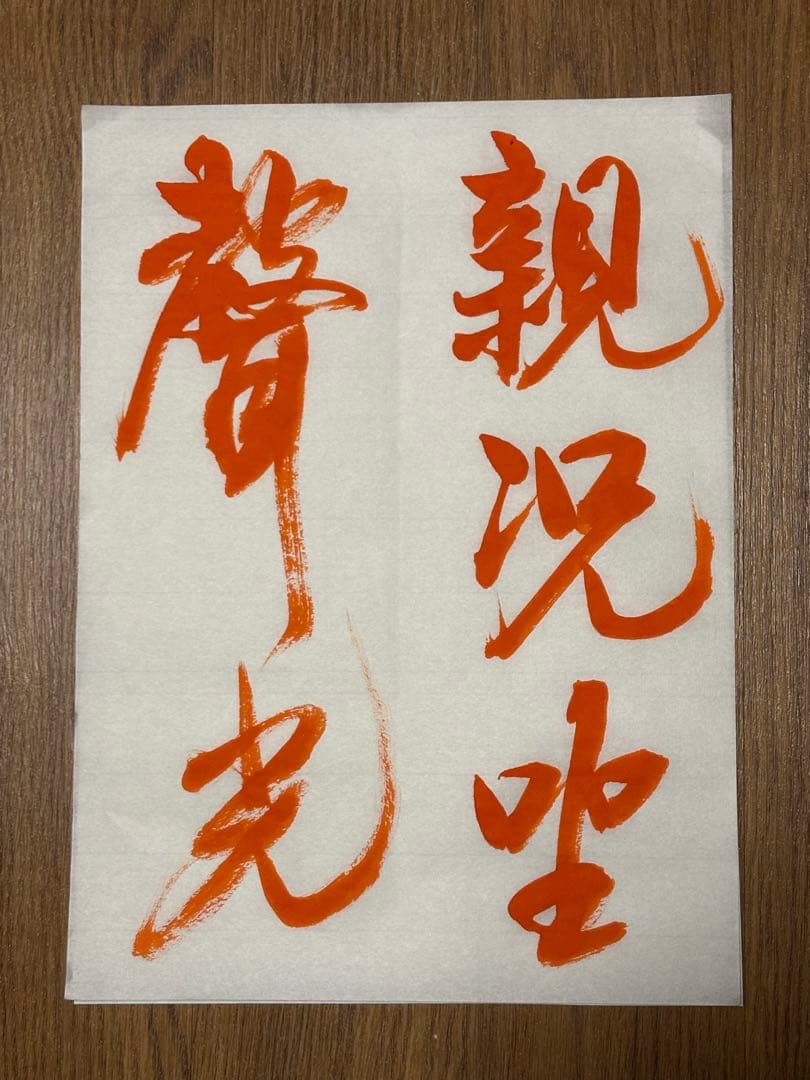 親況坐
聲光